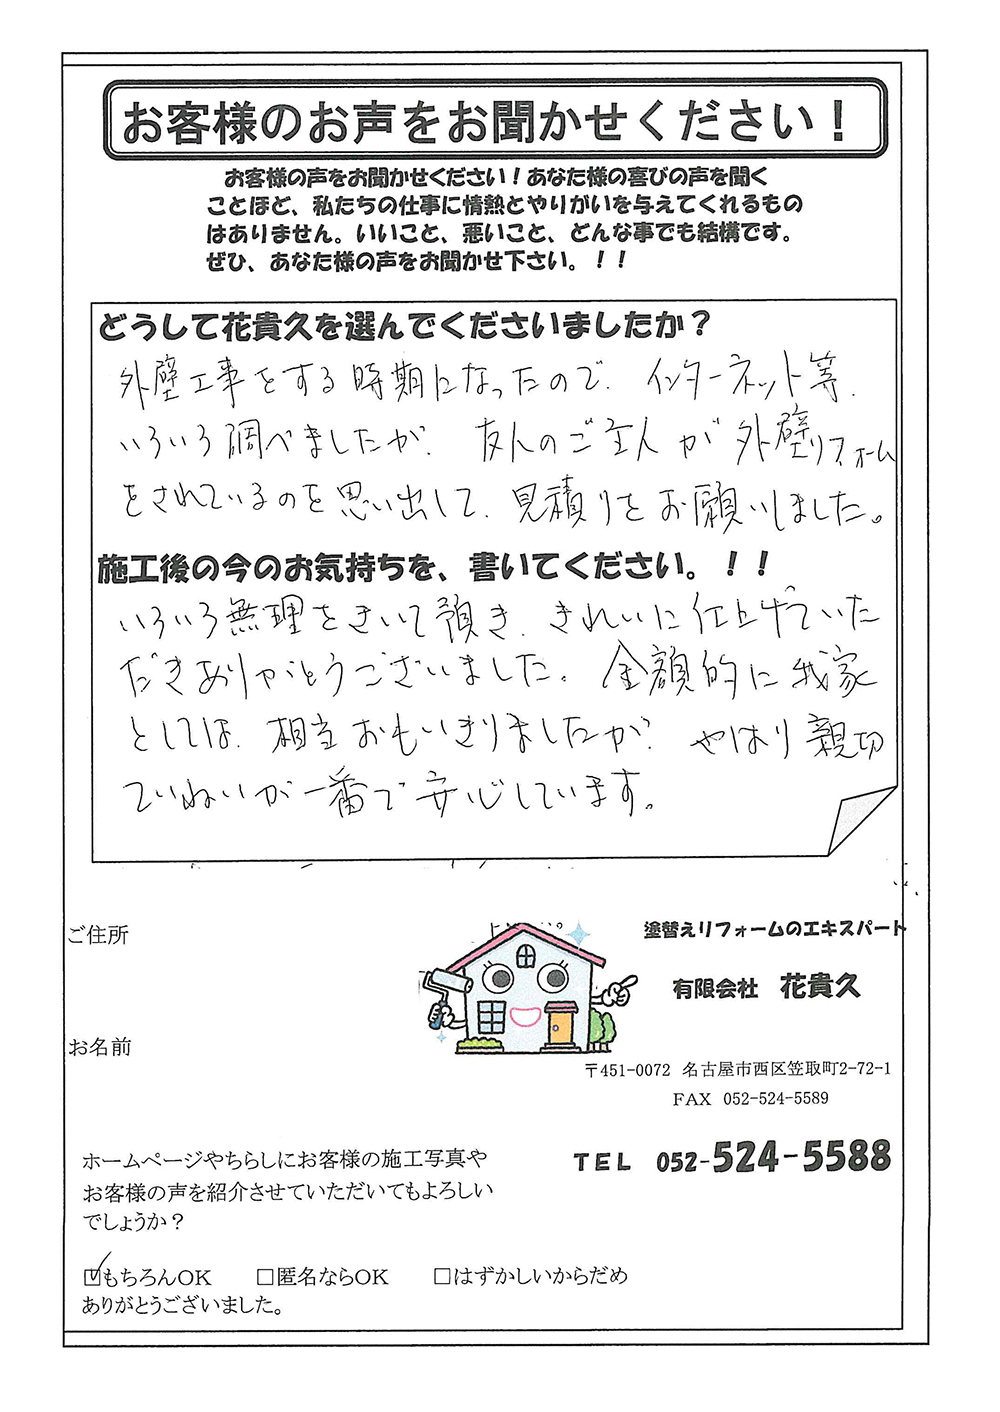 お客様のお声をお聞かせください！
お客様の声をお聞かせください！あなた様の喜びの声を聞く
ことほど、私たちの仕事に情熱とやりがいを与えてくれるもの
はありません。いいこと、悪いこと、どんな事でも結構です。
ぜひ、あなた様の声をお聞かせ下さい。！！
どうして花貴久を選んでくださいましたか？
外壁工事をする時期になったので、インターネット等、
いろいろ調べましたが、友人のご主人が外壁リフォーム
をされているのを思い出して、見積りをお願いしました。
施工後の今のお気持ちを、書いてください。！！
いろいろ無理をきいて頂き、きれいに仕上げていた
だきありがとうございました。金額的に我家
としては、相当おもいきりましたが、やはり親切
ていねいが一番で安心しています。
ご住所
塗替えリフォームのエキスパート
有限会社　花貴久
お名前
〒451-0072 名古屋市西区笠取町2-72-1
FAX 052-524-5589
TEL 052-524-5588
ホームページやちらしにお客様の施工写真や
お客様の声を紹介させていただいてもよろしい
でしょうか？
☑もちろんOK　□匿名ならOK　□はずかしいからだめ
ありがとうございました。